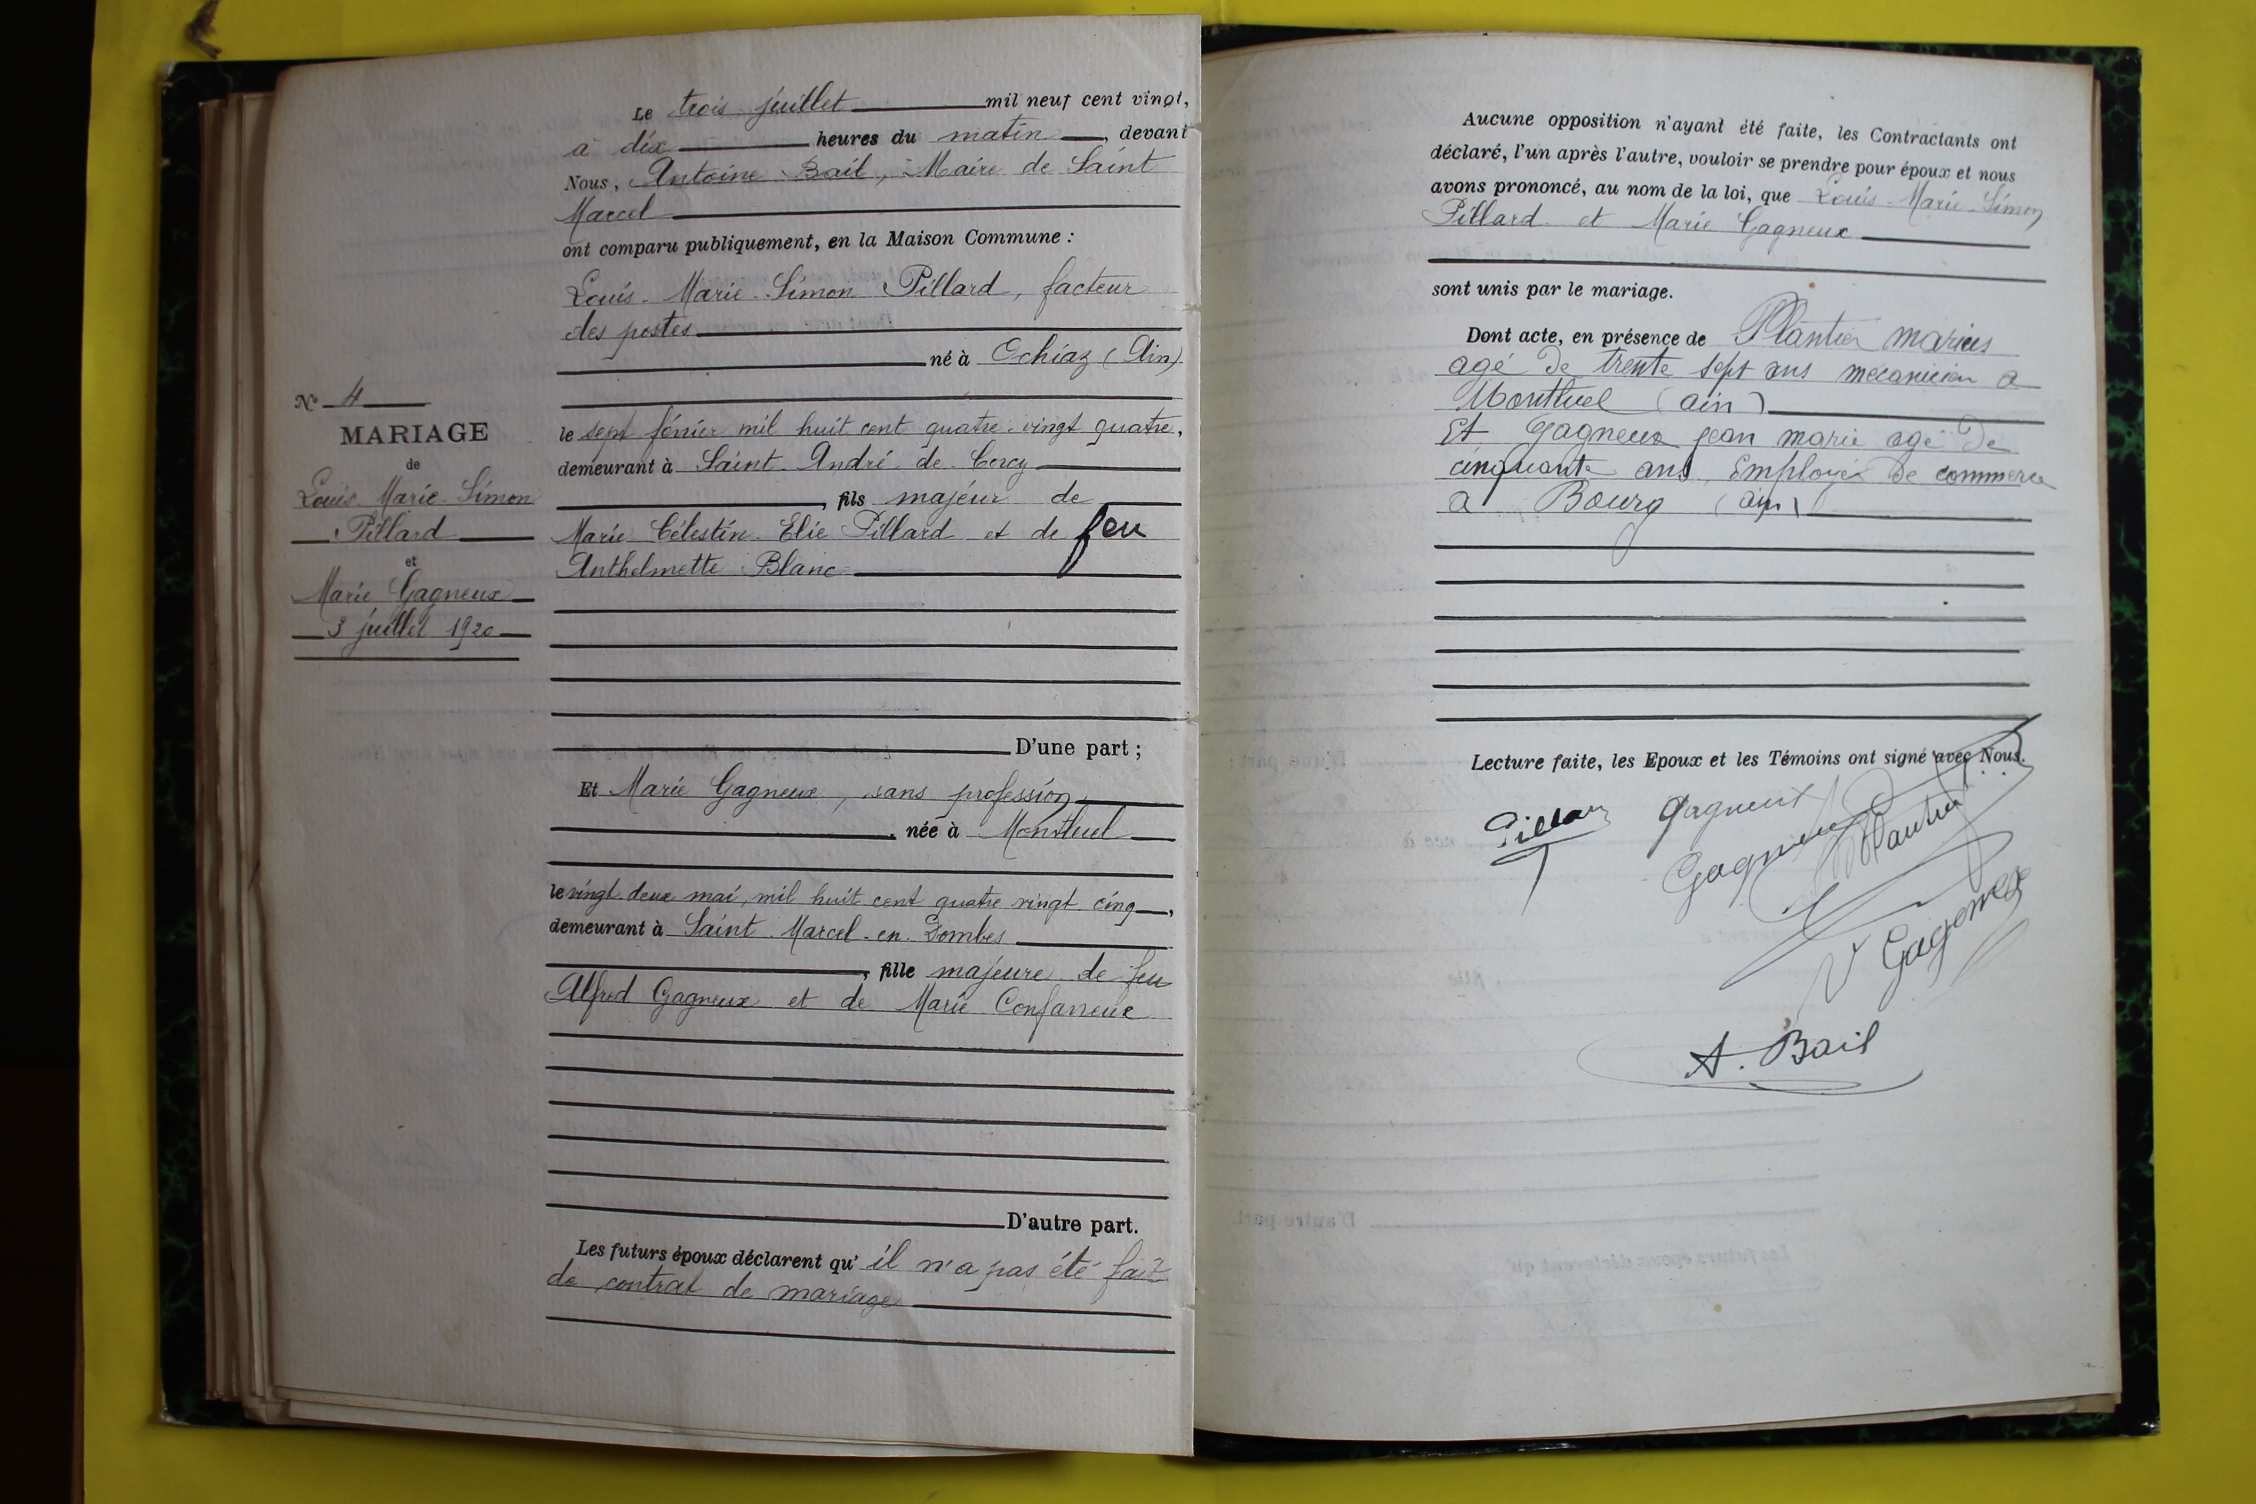 Le trois juillet mil neuf cent vingt,
à dix heures du matin, devant
Nous, Antoine Bail, Maire de Saint
Marcel
ont comparu publiquement, en la Maison Commune :
Louis-Marie-Simon Pillard, facteur
des postes
né à Ochiaz (Ain)
le sept février mil huit cent quatre-vingt quatre,
demeurant à Saint-André-de-Corcy
, fils majeur de
Marie Célestin Elie Pillard et de feu
Anthelmette Blanc
D'une part ;
Et Marie Gagneux, sans profession,
, née à Montluel
le vingt deux mai, mil huit cent quatre vingt cinq,
demeurant à Saint-Marcel-en-Dombes
, fille majeure de feu
Alfred Gagneux et de Marie
D'autre part.
Les futurs époux déclarent qu'il n'a pas été fait
de contrat de mariage
N° 4
MARIAGE
de
Louis-Marie-Simon
Pillard
et
Marie Gagneux
3 juillet 1920
Aucune opposition n'ayant été faite, les Contractants ont
déclaré, l'un après l'autre, vouloir se prendre pour époux et nous
avons prononcé, au nom de la loi, que Louis-Marie-Simon
Pillard et Marie Gagneux
sont unis par le mariage.
Dont acte, en présence de Plantier marius
agé de trente sept ans mecanicien a
Montluel (ain)
Et Gagneux jean marie agé de
cinquante ans, Employé de commerce
a Bourg (ain)
Lecture faite, les Epoux et les Témoins ont signé avec Nous.
Pillard
Gagneux
Gagneux
Plantier
V Gagneux
A. Bail